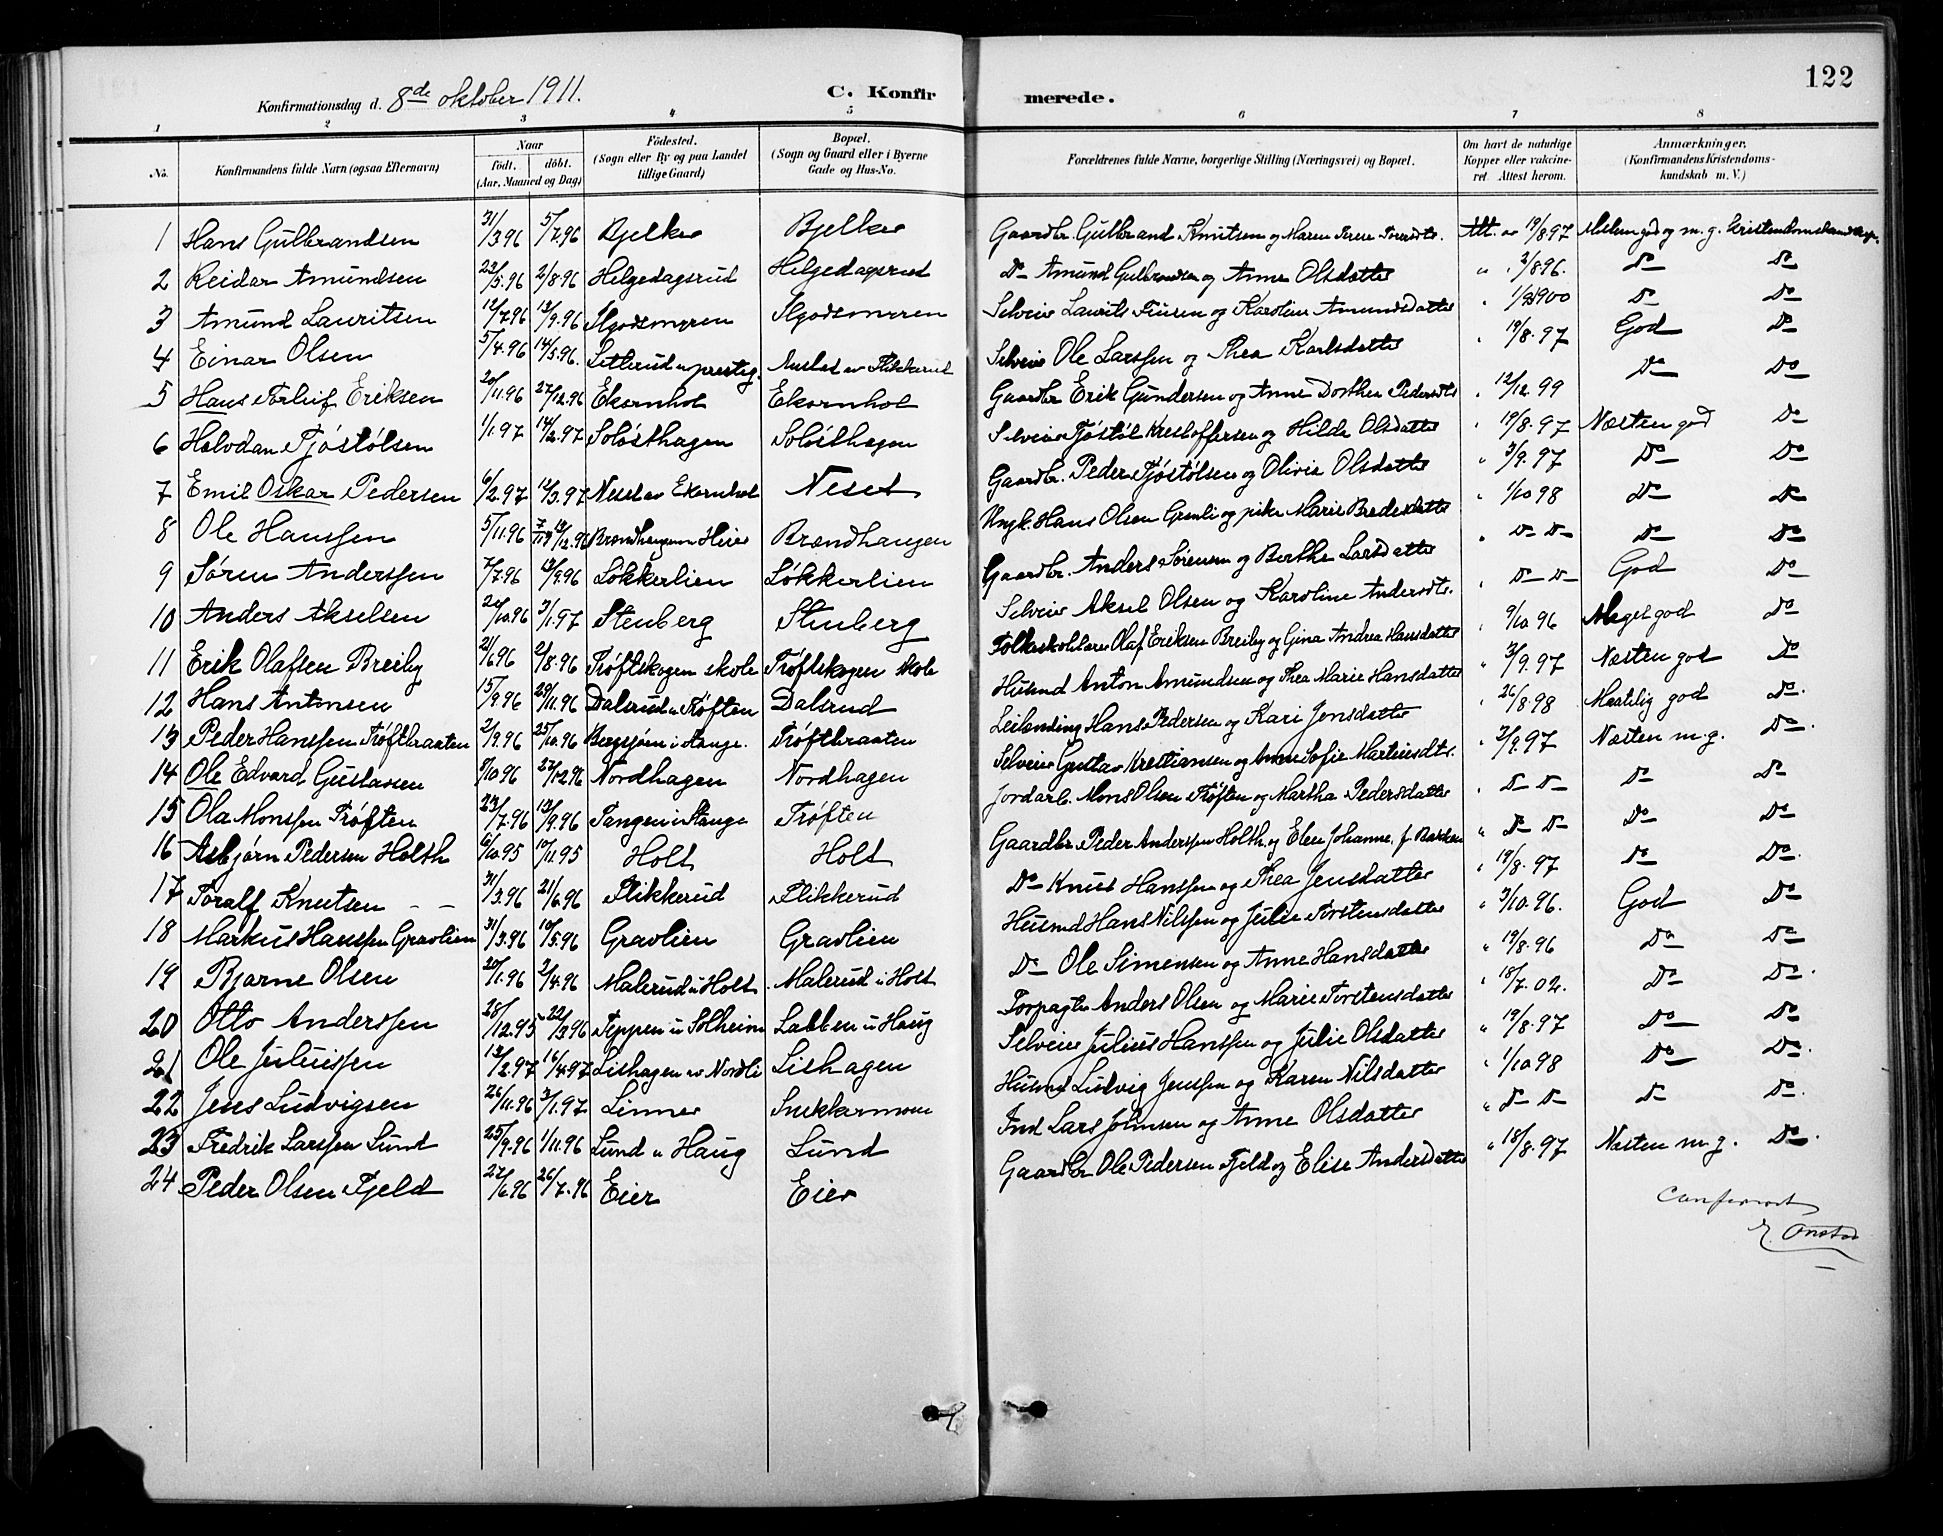 122
Konfirmationsdag d. 8de oktober 1911. C. Konfirmerede.
1 2 3 4 5 6 7 8
No. Konfirmandens fulde Navn (ogsaa Efternavn) Naar födt. döbt. (Aar, Maaned og Dag) Födested. (Sogn eller By og paa Landet tillige Gaard) Bopæl. (Sogn og Gaard eller i Byerne Gade og Hus-No. Forældrenes fulde Navne, borgerlige Stilling (Næringsvei) og Bopæl. Om havt de naturlige Kopper eller vakcineret. Attest herom. Anmærkninger. (Konfirmandens Kristendomskundskab m. V.)
1 Hans Gulbrandsen 31/3.96 5/7.96 Bjelker Bjelker Gaardbr. Gulbrand Knutsen og Maren Att. av 19/8.97 god og m.g. kristendomskundskap.
2 Reidar Amundsen 22/5.96 2/8.96 Helgedagsrud Helgedagsrud Do Amund Gulbrandsen og Anne Olsdatter " 2/8 96. Do Do
3 Amund Lauritsen 12/7.96 13/9.96 Selveier Laurits og Karoline Amundsdatter " Do Do
4 Einar Olsen 5/4.96 14/5.96. Setterud u. prestg. av Flikkerud Selveier Ole Larssen og Thea Karlsdatter " 19/8.97 God Do
5 Hans Torleif Eriksen 20/11.96 27/12.96 Ekornhol Ekornhol Gaardbr Erik Gundersen og Anne Dorthea Pedersdtr " 12/12.99 Do Do
6 Halvdan Tjóstólsen 1/1.97 14/2.97 Solósthagen Solósthagen Selveier Tjóstól Kristoffersen og Hilda Olsdatter " 19/8.97 Næsten god Do
7 Emil Oskar Pedersen 6/2.97 Neset av Ekornhol Neset Gaardbr. Peder Tjóstólsen og Olivia Olsdatter " 3/9.97 Do Do
8 Ole Hanssen 5/11.96 13/12.96 Brændhaugen u Heier Brændhaugen Ungk. Hans Olsen Grenli og pike Marie " 1/10 98 Do Do
9 Sóren Anderssen 7/7.96 13/9.96 Lókkerlien Lókkerlien Gaardbr. Anders Sórensen og Berthe Larsdatter " Do Do Do Do
10 Anders Akselsen 20/10.96 3/1.97 Stenberg Stenberg Selveier Aksel Olsen og Karoline Andersdtr. " Do Do God Do
11 Erik Olafsen Breiby 21/6.96 2/8.96 Tróftskogen skole Tróftskogen skole Folkeskolelærer Olaf Eriksen Breiby og Gina Andrea Hansdatter " 9/10 96 Meget god Do
12 Hans Antonsen 15/9.96 29/11.96 Dalsrud u Tróften Dalsrud Husmd Anton Amundsen og Thea Marie Hansdatter " 3/9.97 Næsten god Do
13 Peder Hanssen Tróftbraaten 2/9.96 25/10.96 Bergsjóen i Stange. Tróftbraaten Leilending Hans Pedersen og Kari Jensdatter " 26/8.98 Maatelig god Do.
14 Ole Edvard Gustavsen 8/10 96 27/12.96 Nordhagen Nordhagen Selveier Gustav Kristiansen og Anne Sofie Martinsdtr. " 3/9.97 Næsten m.g. Do.
15 Ola Monssen Tróften 23/7.96 13/9.96 Tangen i Stange Tróften Jordarb. Mons Olsen Tróften og Martha Pedersdatter " Do Do Do Do
16 Asbjórn Pedersen Holth 6/10.95 10/11.95 Holt Holt Gaardbr Peder Anderssen Holth og Elen Johanne f. Bakken " Do Do Do Do
17 Toralf Knutsen – – 31/3.96 21/6.96 Flikkerud Flikkerud Do Knut Hanssen og Thea Jensdatter " 19/8.97 Do Do.
18 Markus Hanssen Gravlien 31/3.96 10/5.96 Gravlien Gravlien Husmd Hans Nilssen og Julie Torstensdatter " 3/10.96. God Do
19 Bjarne Olsen 20/1.96 2/4.96 Malerud u Holt Malerud u Holt Do Ole Simensen og Anne Hansdatter " 19/8.96 Do Do
20 Otto Anderssen 28/12.95 22/3.96 Teppen u Solheim Labben u Haug Forpagter Anders Olsen og Marie Torstensdatter " 18/7.02. Do Do.
21 Ole Juliussen 13/2.97 16/4.97 Lishagen av Nordli Lishagen Selveier Julius Hanssen og Julie Olsdatter " 19/8.97 Do Do
22 Jens Ludvigsen 26/11.96 3/1.97 Linner Snekkermoen Husmd Ludvig Jenssen og Karen Nilsdatter " 1/10 98 Do Do.
23 Fredrik Larssen Lund 25/9.96 1/11.96 Lund u Haug Lund Ind Lars Johnsen og Anne Olsdatter " Do Do Do Do.
24 Peder Olsen Fjeld 27/6.96 26/7.96 Eier Eier Gaardbr Ole Pedersen Fjeld og Elise Andersdatter " 18/8.97 Næsten m.g. Do.
Conferert
E. Onstad